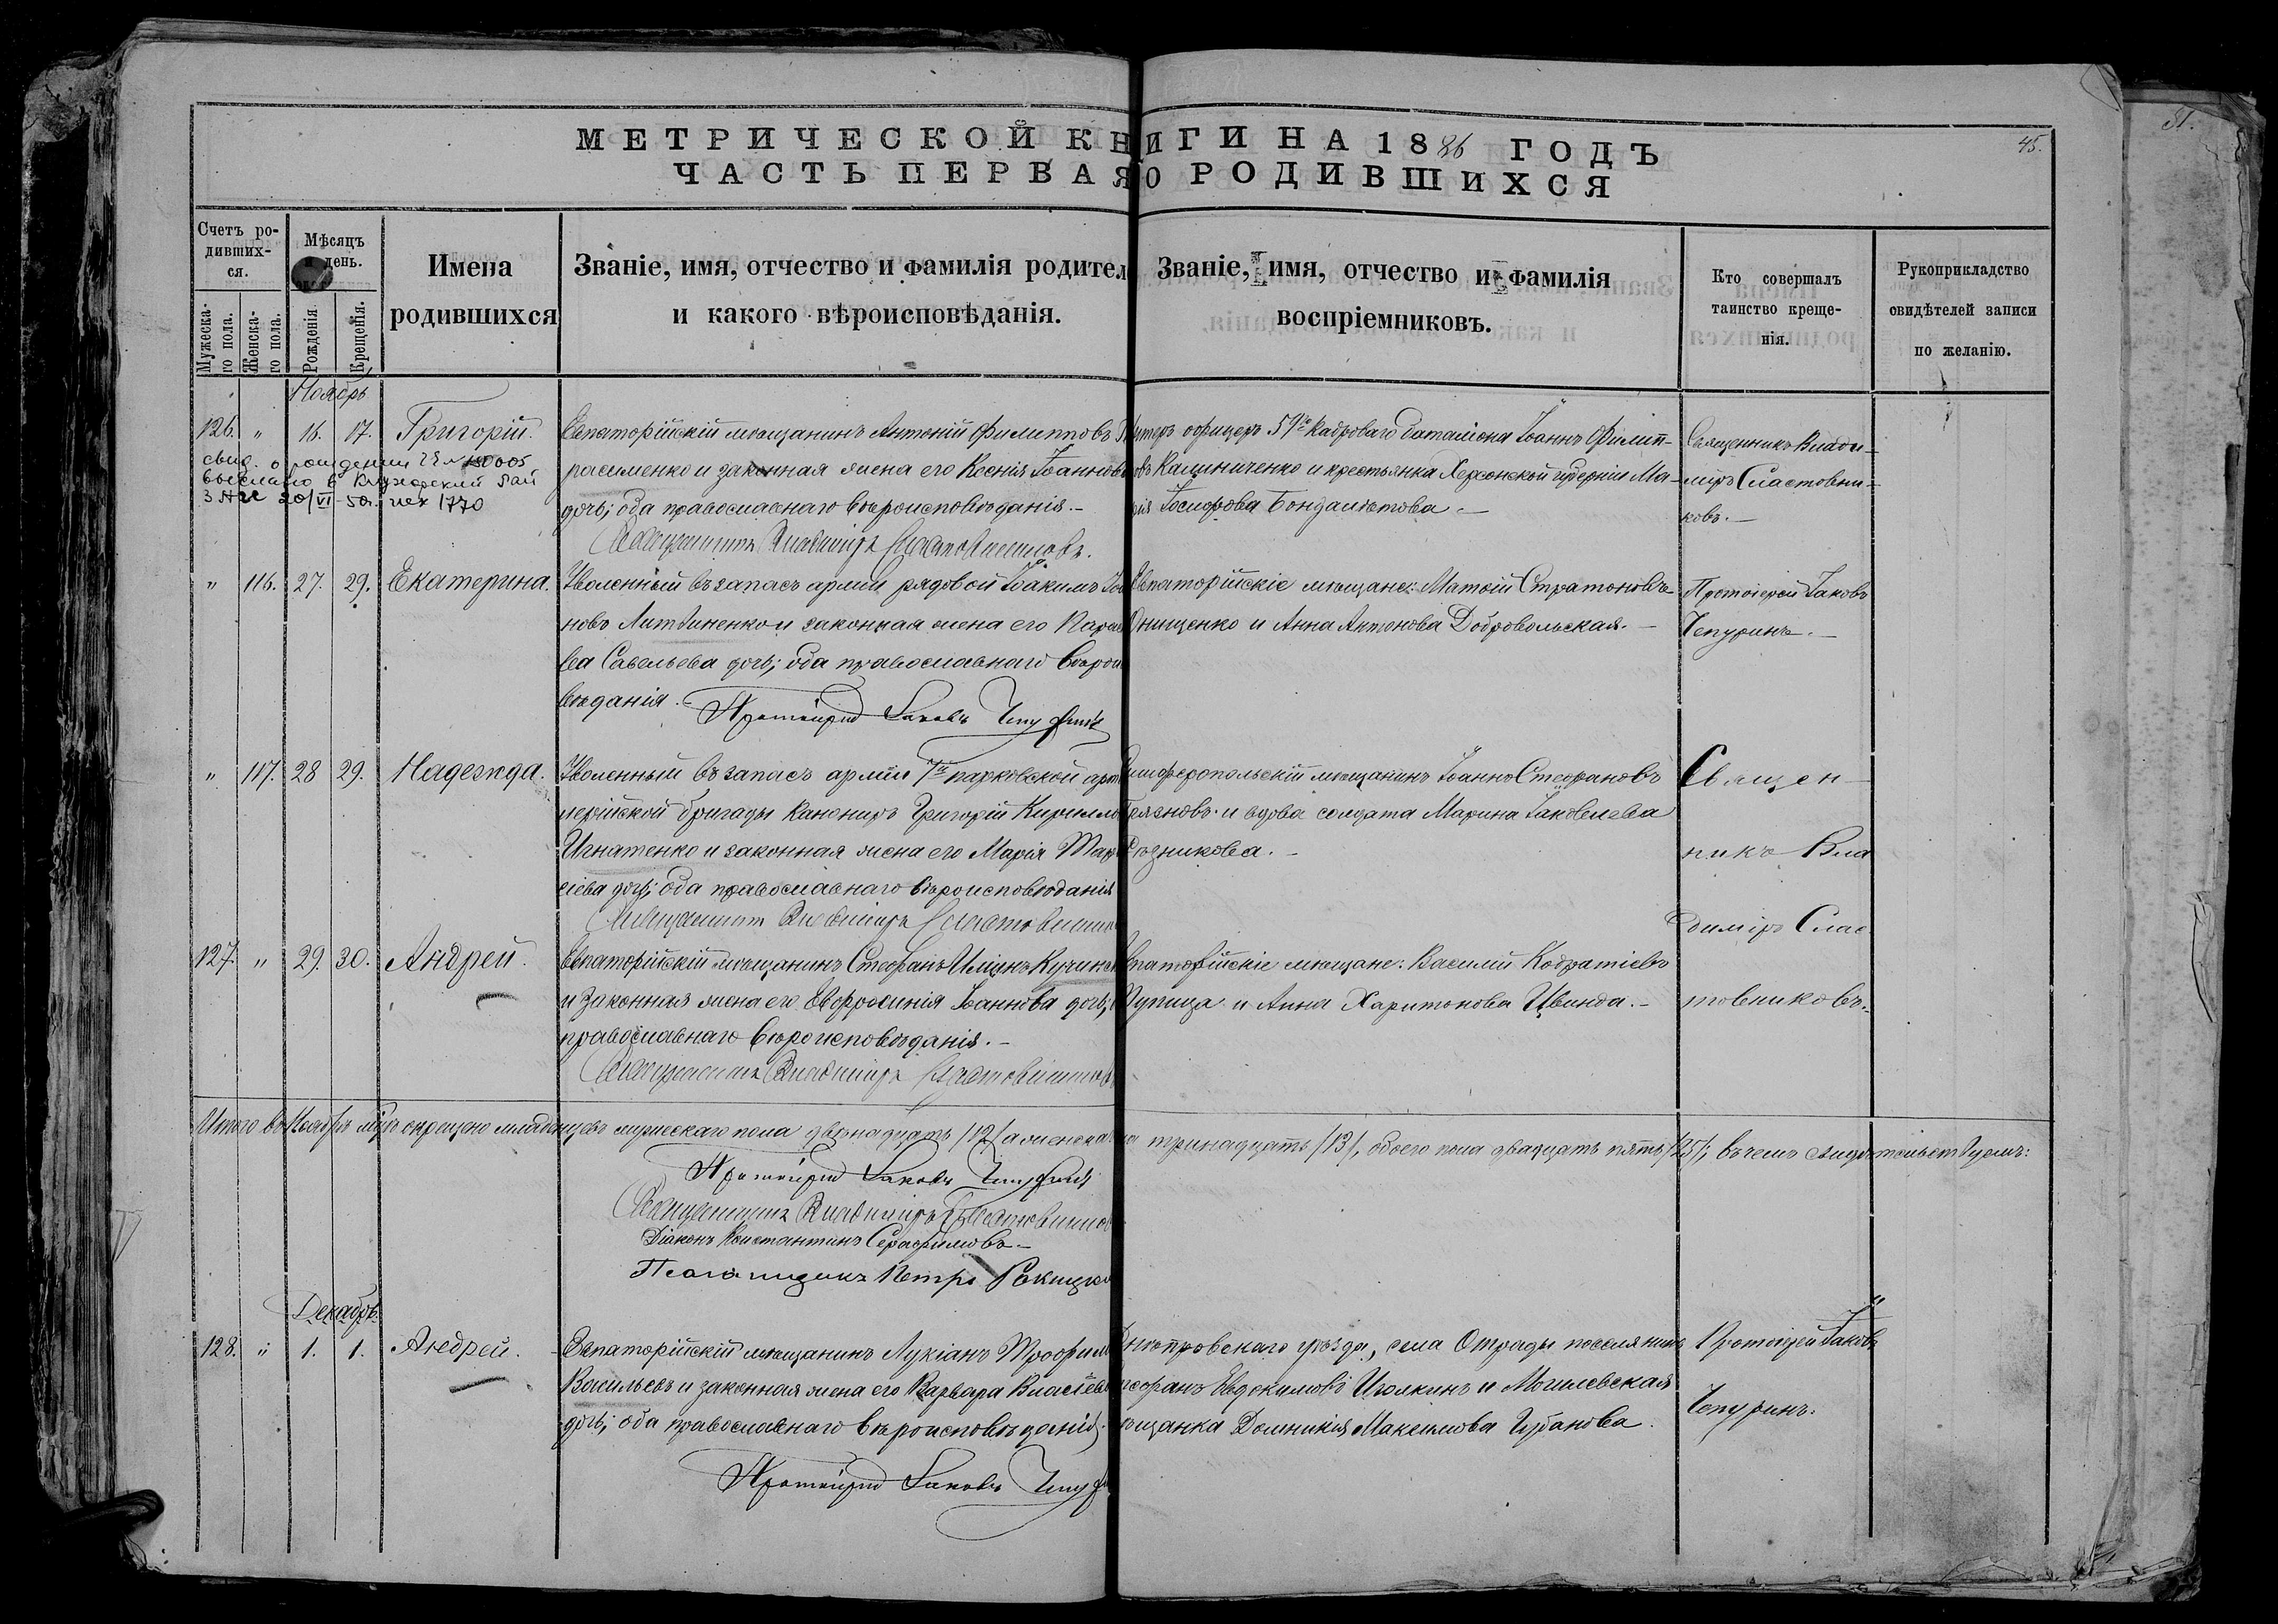 МЕТРИЧЕСКОЙ КНИГИ НА 1886 ГОДЪ
45.
51.
ЧАСТЬ ПЕРВАЯ О РОДИВШИХСЯ
Счетъ родивших-
ся.
Мужеска-
го пола.
Женска-
го пола.
Мѣсяцъ
и день.
Рожденія.
Крещенія.
Имена
родившихся
Званіе, имя, отчество и фамилія родител
и какого вѣроисповѣданія.
Званіе, имя, отчество и фамилія
воспріемниковъ.
Кто совершалъ
таинство креще-
нія.
Рукоприкладство
свидѣтелей записи
по желанію.
Ноябрь
126. " 16. 17. Григорій.
свид. о рождении
выслано в
20/VI-50г. исх 1770
Евпаторійскій мѣщанинъ Антоній Филипповъ
расименко и законная жена его Ксенія Іоаннова
дочь; оба православнаго вѣроисповѣданія.-
Священникъ Владиміръ Сластовниковъ.
унтеръ офицеръ 51го Кадроваго баталіона Іоаннъ Филипп-
овъ Калиниченко и крестьянка Херсонской губерніи Ма-
рія Іосифова
Священникъ Влади-
міръ Сластовни-
ковъ.-
" 116. 27. 29. Екатерина.
Уволенный въ запасъ арміи рядовой Іоакимъ Іоа
новъ Литвиненко и законная жена его Парас
ва Савельева дочь; оба православнаго вѣроис
вѣданія.
Протоіерей Іаковъ Чепуринъ
Евпаторійскіе мѣщане: Матѳій Стратоновъ
Онищенко и Анна Антонова Добровольская.-
Протоіерей Іаковъ
Чепуринъ.-
" 117. 28 29. Надежда.
Уволенный въ запасъ арміи 7й парковской арти
лерійской бригады канониръ Григорій Кирилло
Игнатенко и законная жена его Марія
сіева дочь; оба православнаго вѣроисповѣданія
Священникъ Владиміръ Сластовников
Симферопольскій мѣщанинъ Іоаннъ Стефановъ
Грязновъ и вдова солдата Марина Іаковлева
Рѣзникова.-
Священ-
никъ Вла
диміръ Слас
товниковъ.
127. " 29. 30. Андрей.
Евпаторійскій мѣщанинъ Стефанъ Иліинъ
и законная жена его Евфросинія Іоаннова дочь;
православнаго вѣроисповѣданія.-
Священникъ Владиміръ Сластовниковъ
Евпаторійскіе мѣщане: Василій Кодратіевъ
Пупица и Анна Харитонова Цвинда.-
Итого въ Ноябрѣ мцѣ окрещено младенцевъ мужескаго пола двѣнадцать /12/ а женска го тринадцать /13/, обоего пола двадцать пять /25/; въ чемъ свидѣтельствуемъ:
Протоіерей Іаковъ Чепуринъ
Священникъ Владиміръ Сластовников
Діаконъ Константинъ Серафимовъ-
Псаломщикъ Петръ Ракицкі
Декабрь.
128. " 1. 1. Андрей.
Евпаторійскій мѣщанинъ Лукіанъ Трофим
Васильевъ и законная жена его Варвара Власіева
дочь; оба православнаго вѣроисповѣданія.
Протоіерей Іаковъ Чепур
Днѣпровскаго уѣзда, села Отрады поселянинъ
Стефанъ Евдокимовъ Иголкинъ и Могилевская
мѣщанка Домникія Максимова Урбанова.
Протоіерей Іаковъ
Чепуринъ.